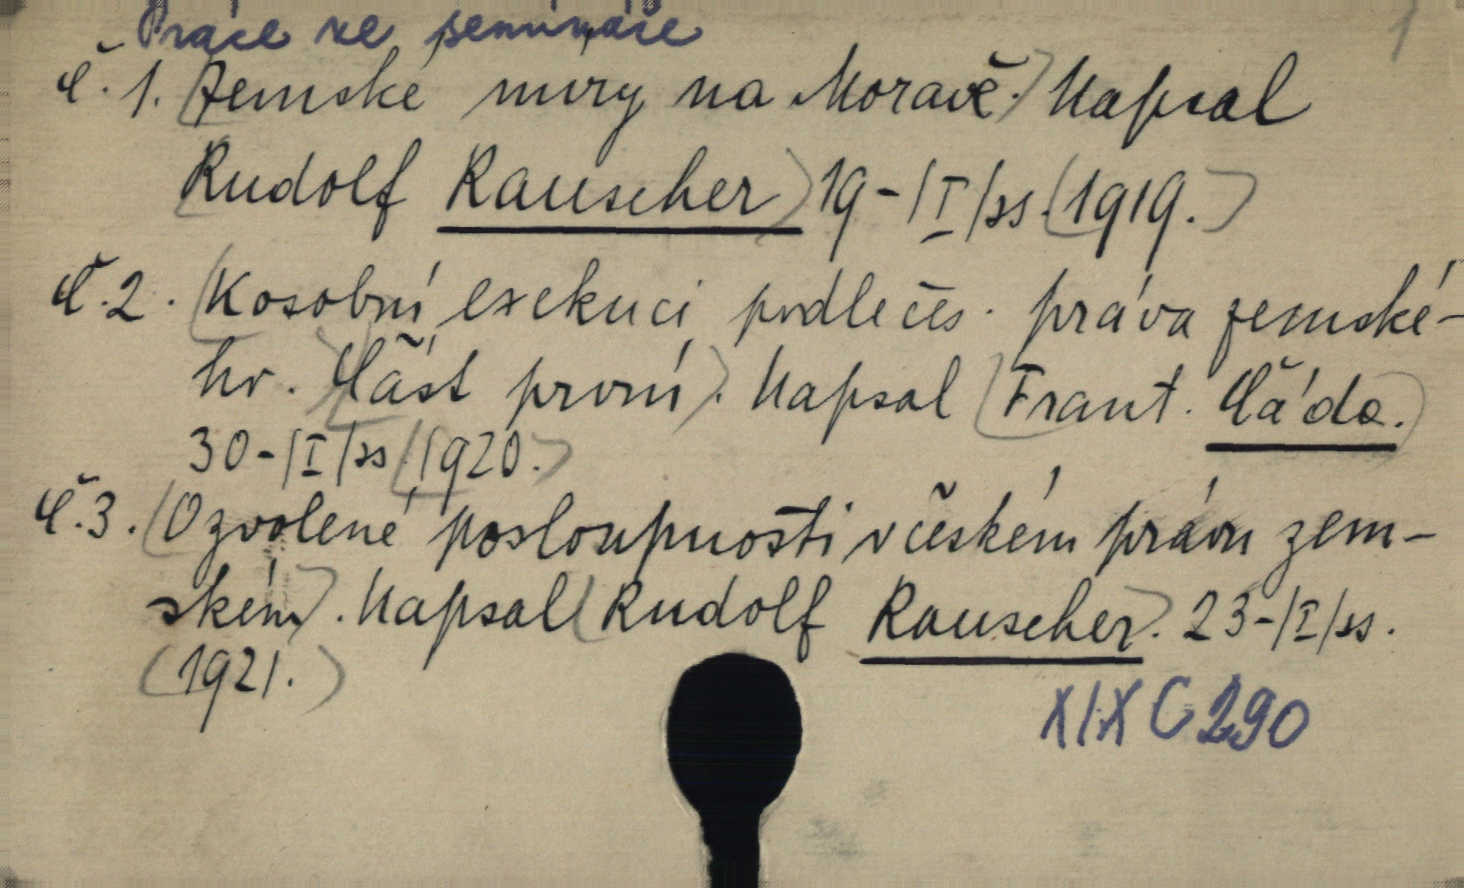 Práce ze semináře
1
č. 1. Zemské míry na Moravě. Napsal
Rudolf Rauscher 19-|I|ss. (1919.)
Č. 2. (K osobní exekuci podle čes. práva zemské-
ho. Část první). Napsal (Frant. Čáda.)
30-|I|ss (1920.)
č. 3. (O zvolené posloupnosti v českém právu zem-
ském). Napsal (Rudolf Rauscher). 23-|I|ss.
(1921.)
XIX C 290